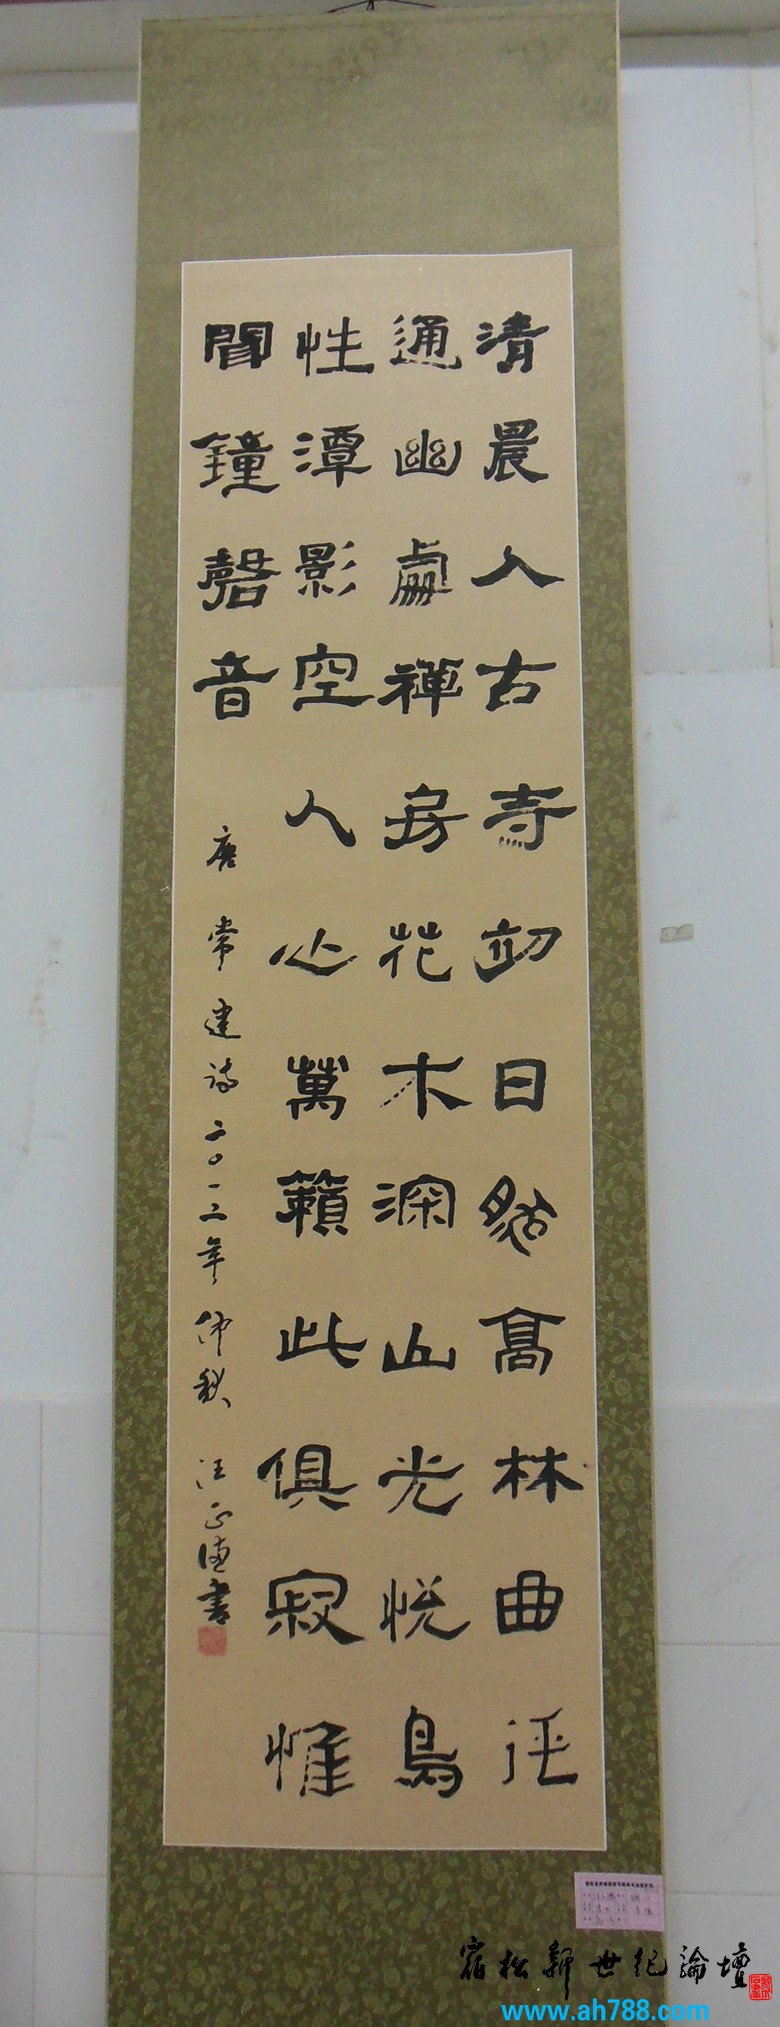 清晨入古寺初日照高林曲徑
通幽處禪房花木深山光悅鳥
性潭影空人心萬籟此俱寂惟
聞鐘磬音
唐常建詩二〇一二年仲秋 汪正德書
宿松新世纪論壇
www.ah788.com